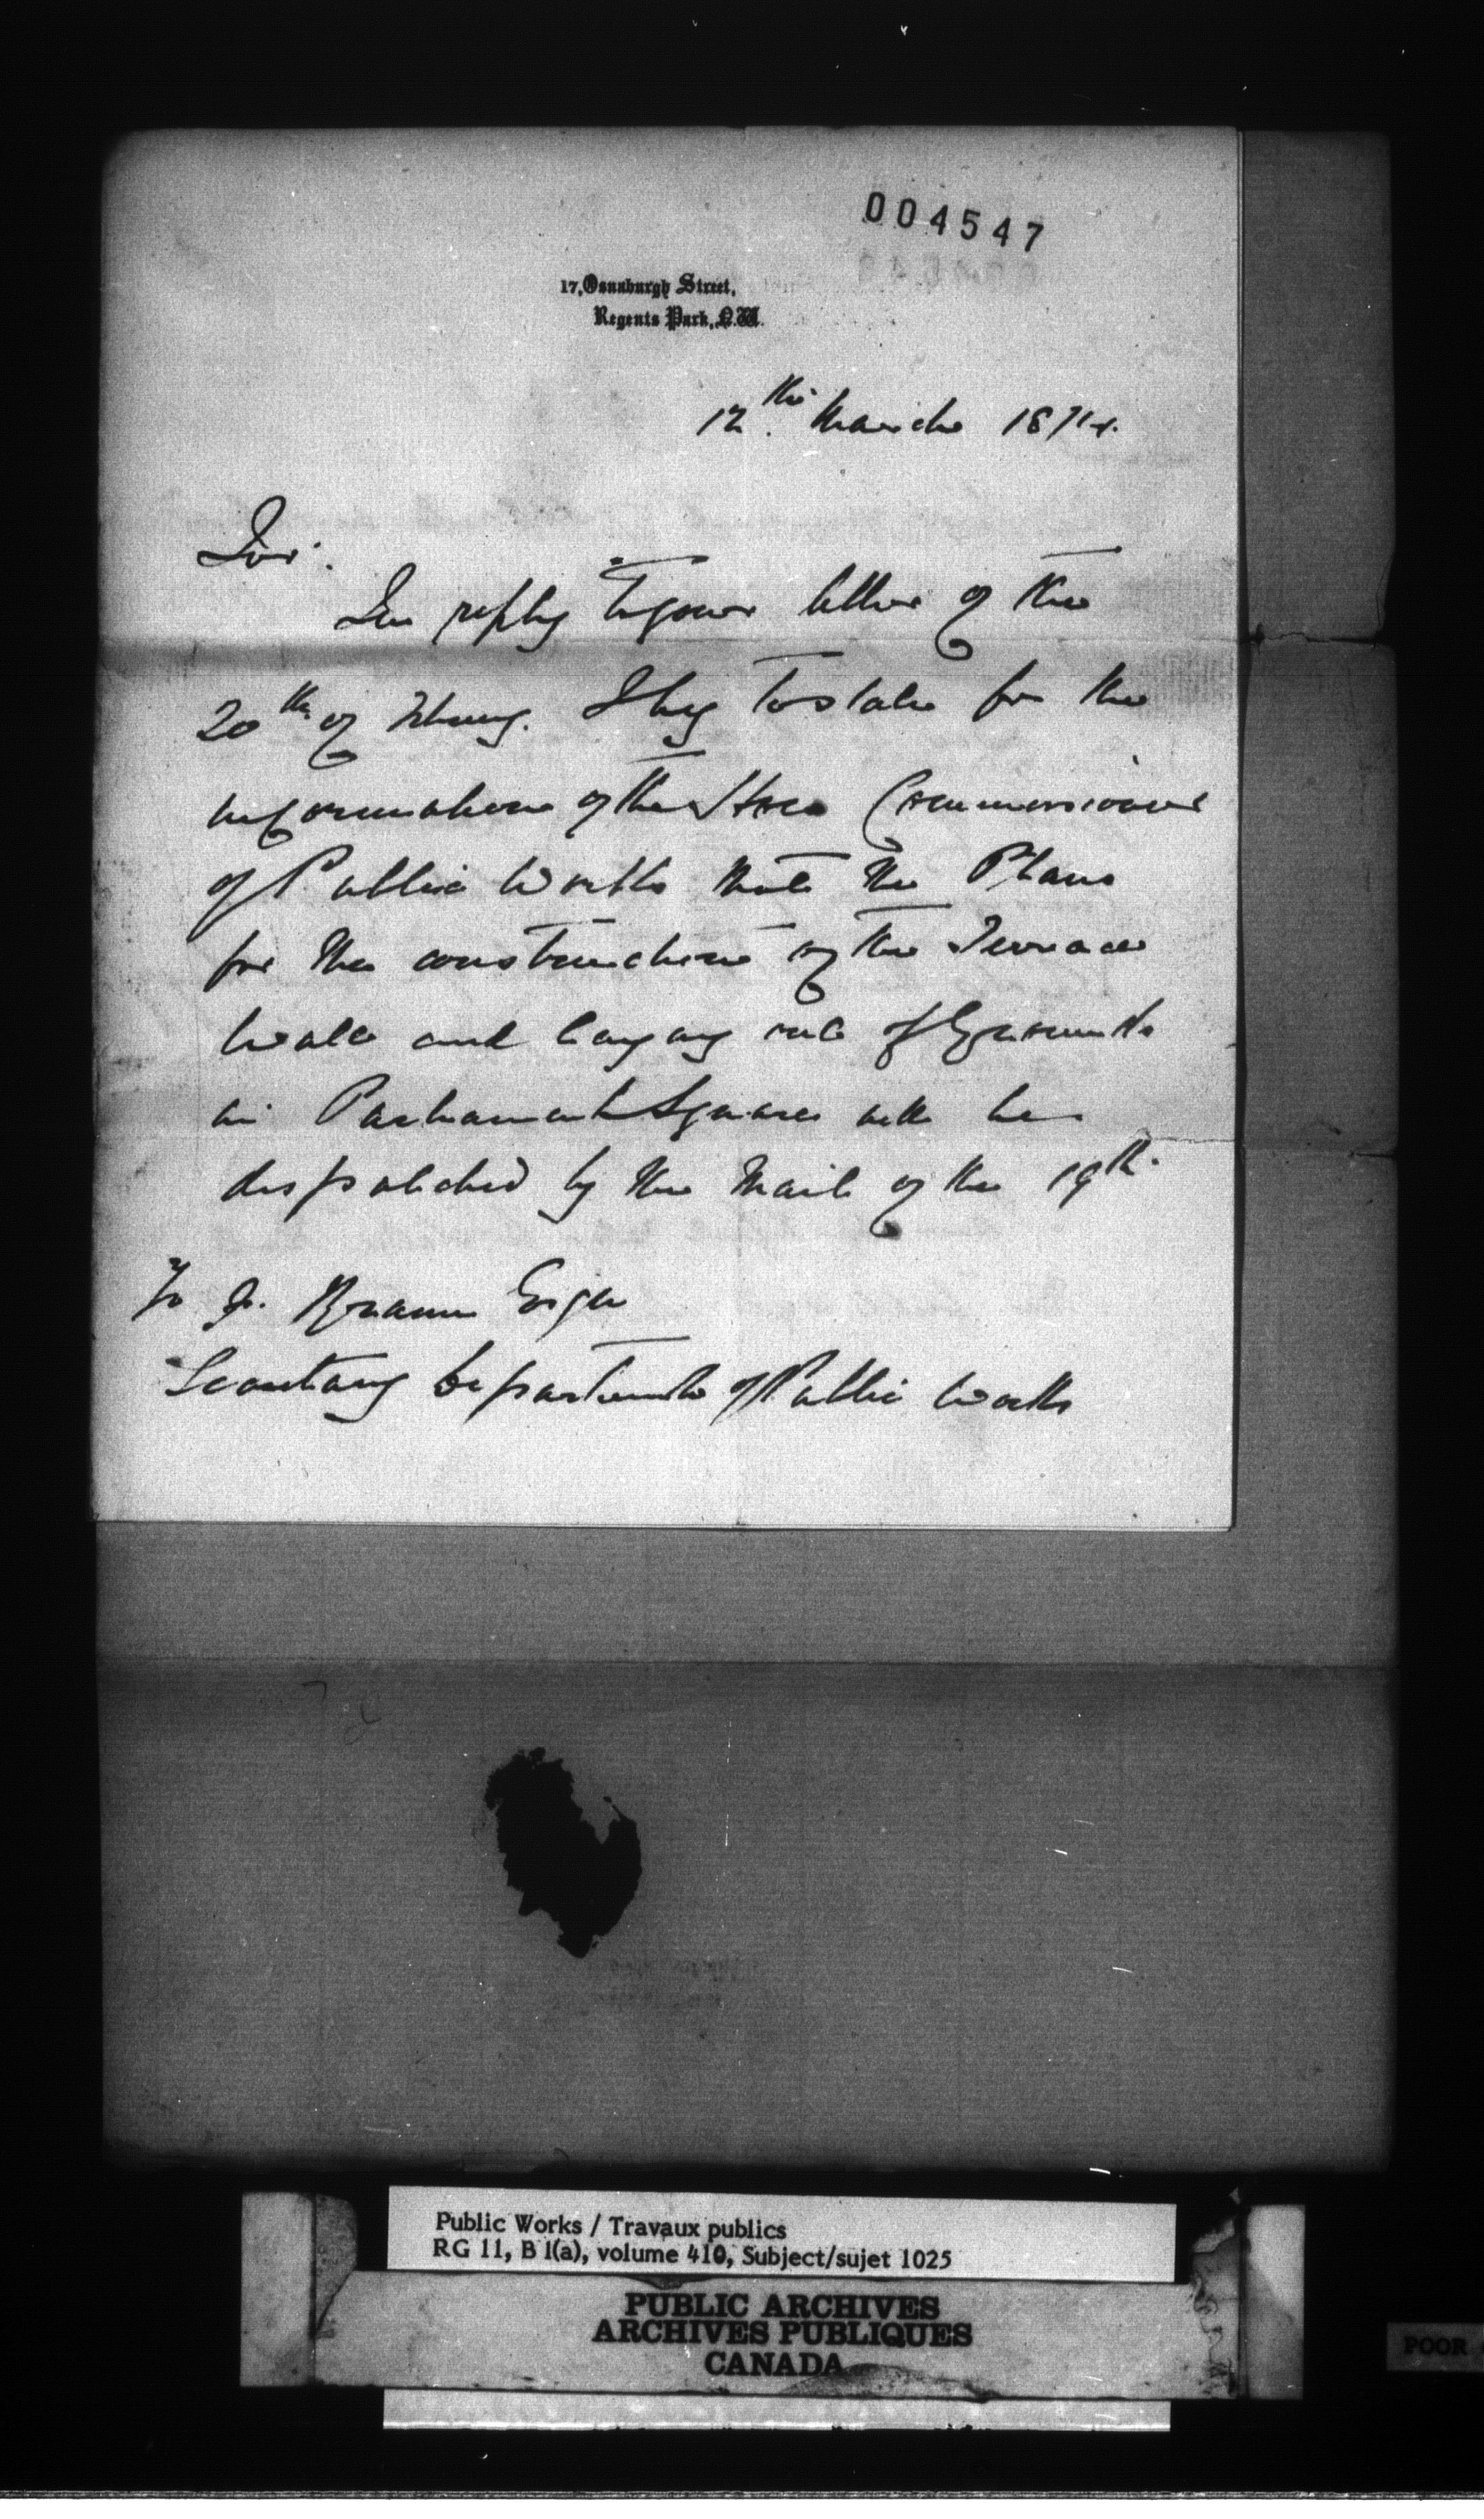 004547
17, Osnaburgh Street,
Regents Park, N.W.
12th March 1874.
Sir.
In reply to your letter of the
20th of I beg to state for the
information of the Commissioner
of Public Works that the Plans
for the construction of the Terrace
Wall and laying out of Grounds
in Parliament Square will be
dispatched by the Mail of the 19th
To F. Braun Esqre
Secretary Department of Public Works
Public Works / Travaux publics
RG 11, B 1(a), volume 410, Subject/sujet 1025
PUBLIC ARCHIVES
ARCHIVES PUBLIQUES
CANADA
POOR